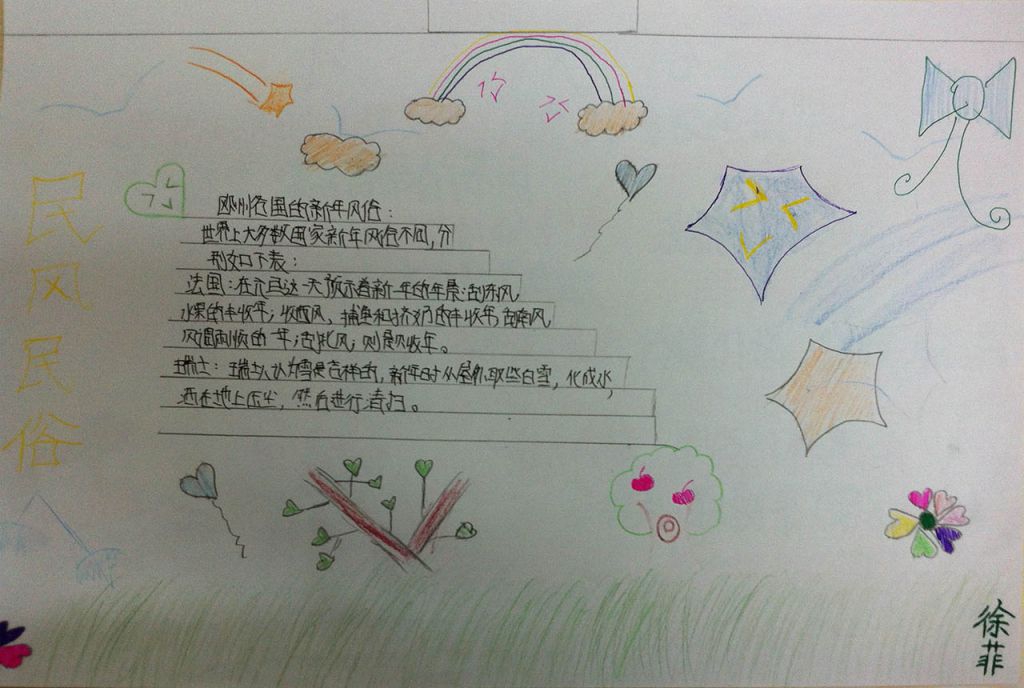 民风民俗
欧洲各国的新年风俗:
世界上大多数国家新年风俗不同,分
别如下表:
法国:在元旦这一天预示着新一年的年景:刮东风,
水果的丰收年;收西风,捕鱼和挤奶的丰收年;刮南风,
风调雨顺的一年;刮北风,则是欠收年。
瑞士:瑞士人认为雪是吉祥的,新年时从屋外取些白雪,化成水,
洒在地上压尘,然后进行清扫。
徐菲